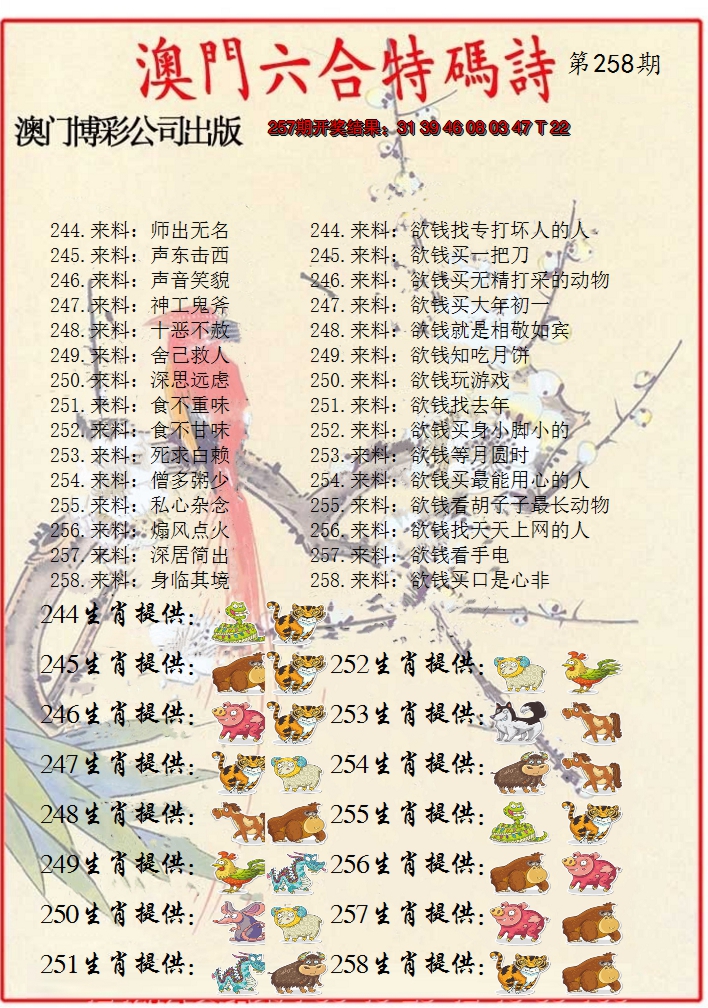 澳門六合特碼詩 第258期
澳门博彩公司出版 257期开奖结果：31 39 46 08 03 47 T 22
244.来料：师出无名 244.来料：欲钱找专打坏人的人
245.来料：声东击西 245.来料：欲钱买一把刀
246.来料：声音笑貌 246.来料：欲钱买无精打采的动物
247.来料：神工鬼斧 247.来料：欲钱买大年初一
248.来料：十恶不赦 248.来料：欲钱就是相敬如宾
249.来料：舍己救人 249.来料：欲钱知吃月饼
250.来料：深思远虑 250.来料：欲钱玩游戏
251.来料：食不重味 251.来料：欲钱找去年
252.来料：食不甘味 252.来料：欲钱买身小脚小的
253.来料：死求白赖 253.来料：欲钱等月圆时
254.来料：僧多粥少 254.来料：欲钱买最能用心的人
255.来料：私心杂念 255.来料：欲钱看胡子子最长动物
256.来料：煽风点火 256.来料：欲钱找天天上网的人
257.来料：深居简出 257.来料：欲钱看手电
258.来料：身临其境 258.来料：欲钱买口是心非
244生肖提供：
245生肖提供： 252生肖提供：
246生肖提供： 253生肖提供：
247生肖提供： 254生肖提供：
248生肖提供： 255生肖提供：
249生肖提供： 256生肖提供：
250生肖提供： 257生肖提供：
251生肖提供： 258生肖提供：